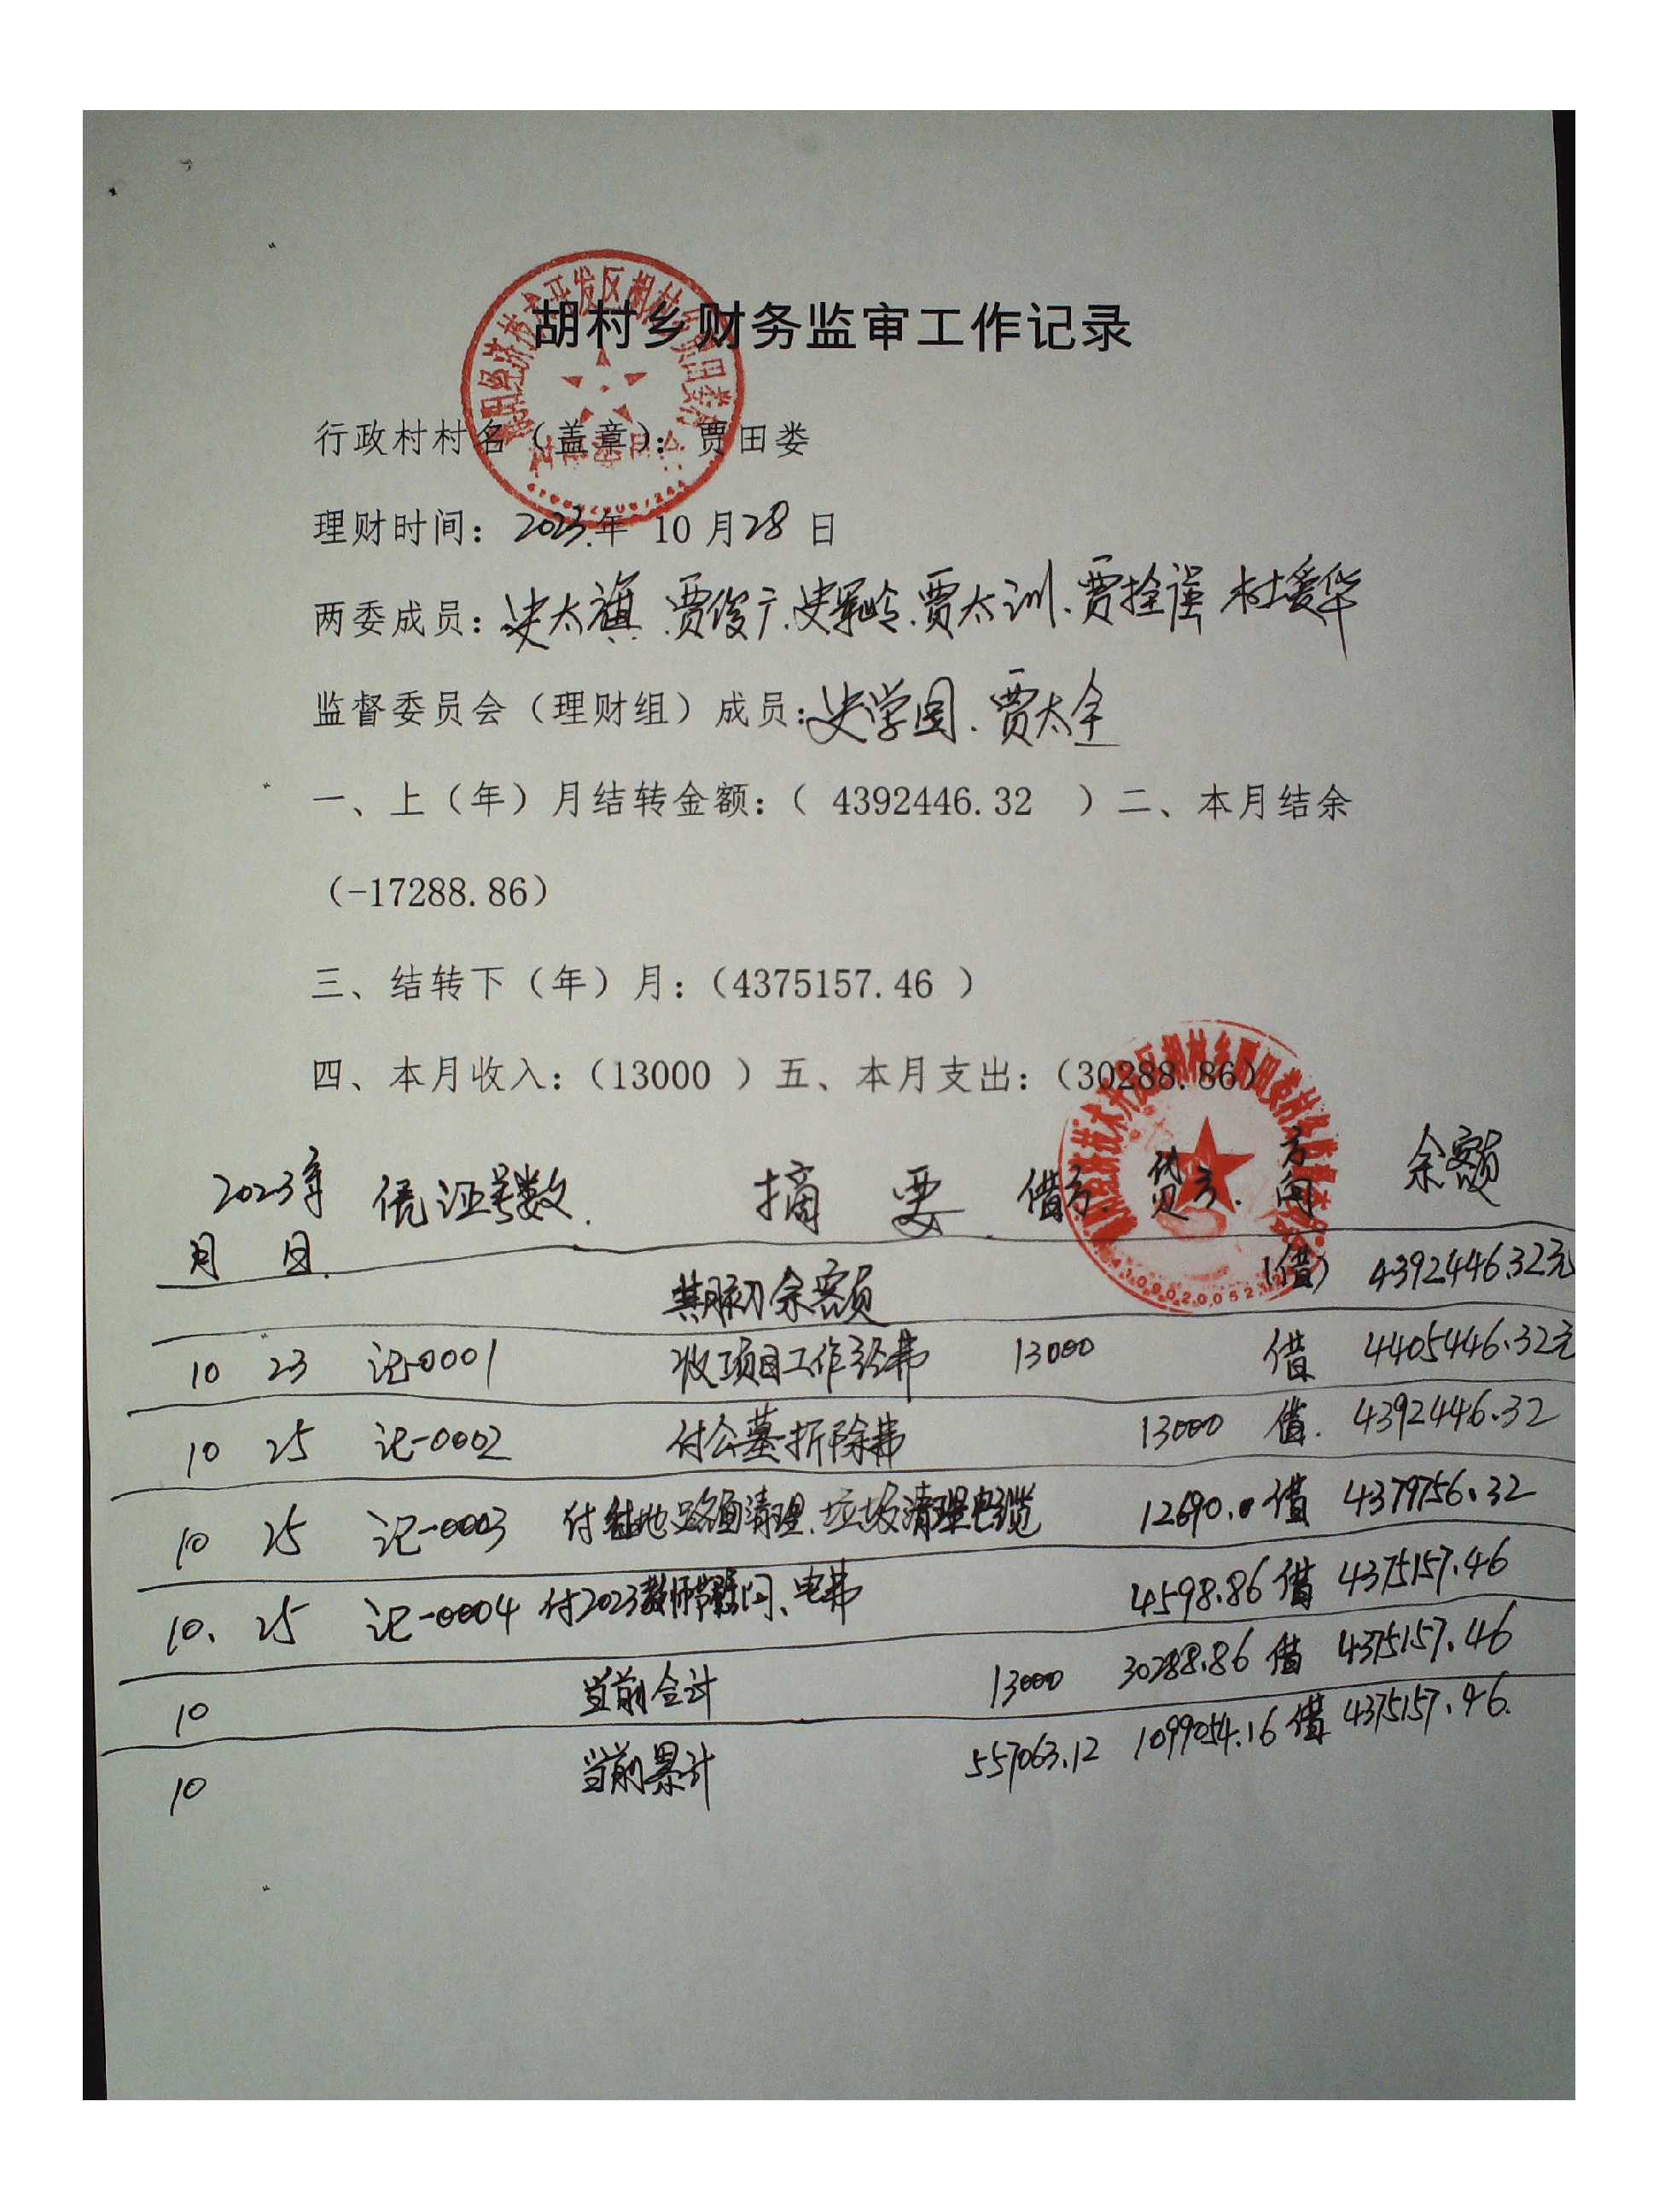 胡村乡财务监审工作记录
行政村村名（盖章）： 贾田娄
理财时间：2023.年 10 月28 日
两委成员：史太旗.贾俊广.史军岭.贾太训.贾拴强 村爱华
监督委员会（理财组）成员：史学国.贾太全
一、上（年）月结转金额：（ 4392446.32 ）二、本月结余
（-17288.86）
三、结转下（年）月：（4375157.46 ）
四、本月收入：（13000 ）五、本月支出：（30288.86）
2023年 凭证号数. 摘 要 借方. 贷方. 方向 余额
月 日.
期初余额 （借） 4392446.32元
10 23 记-0001 收项目工作经费 13000 借 4405446.32元
10 25 记-0002 付公墓折除费 13000 借. 4392446.32
10 25 记-0003 付 路面清理.垃圾清理电缆 12690.0 借 4379756.32
10. 25 记-0004 付2023教师节慰问、电费 4598.86 借 4375157.46
10 当前合计 13000 30288.86 借 4375157.46
10 当前累计 557063.12 1099054.16 借 4375157.46.